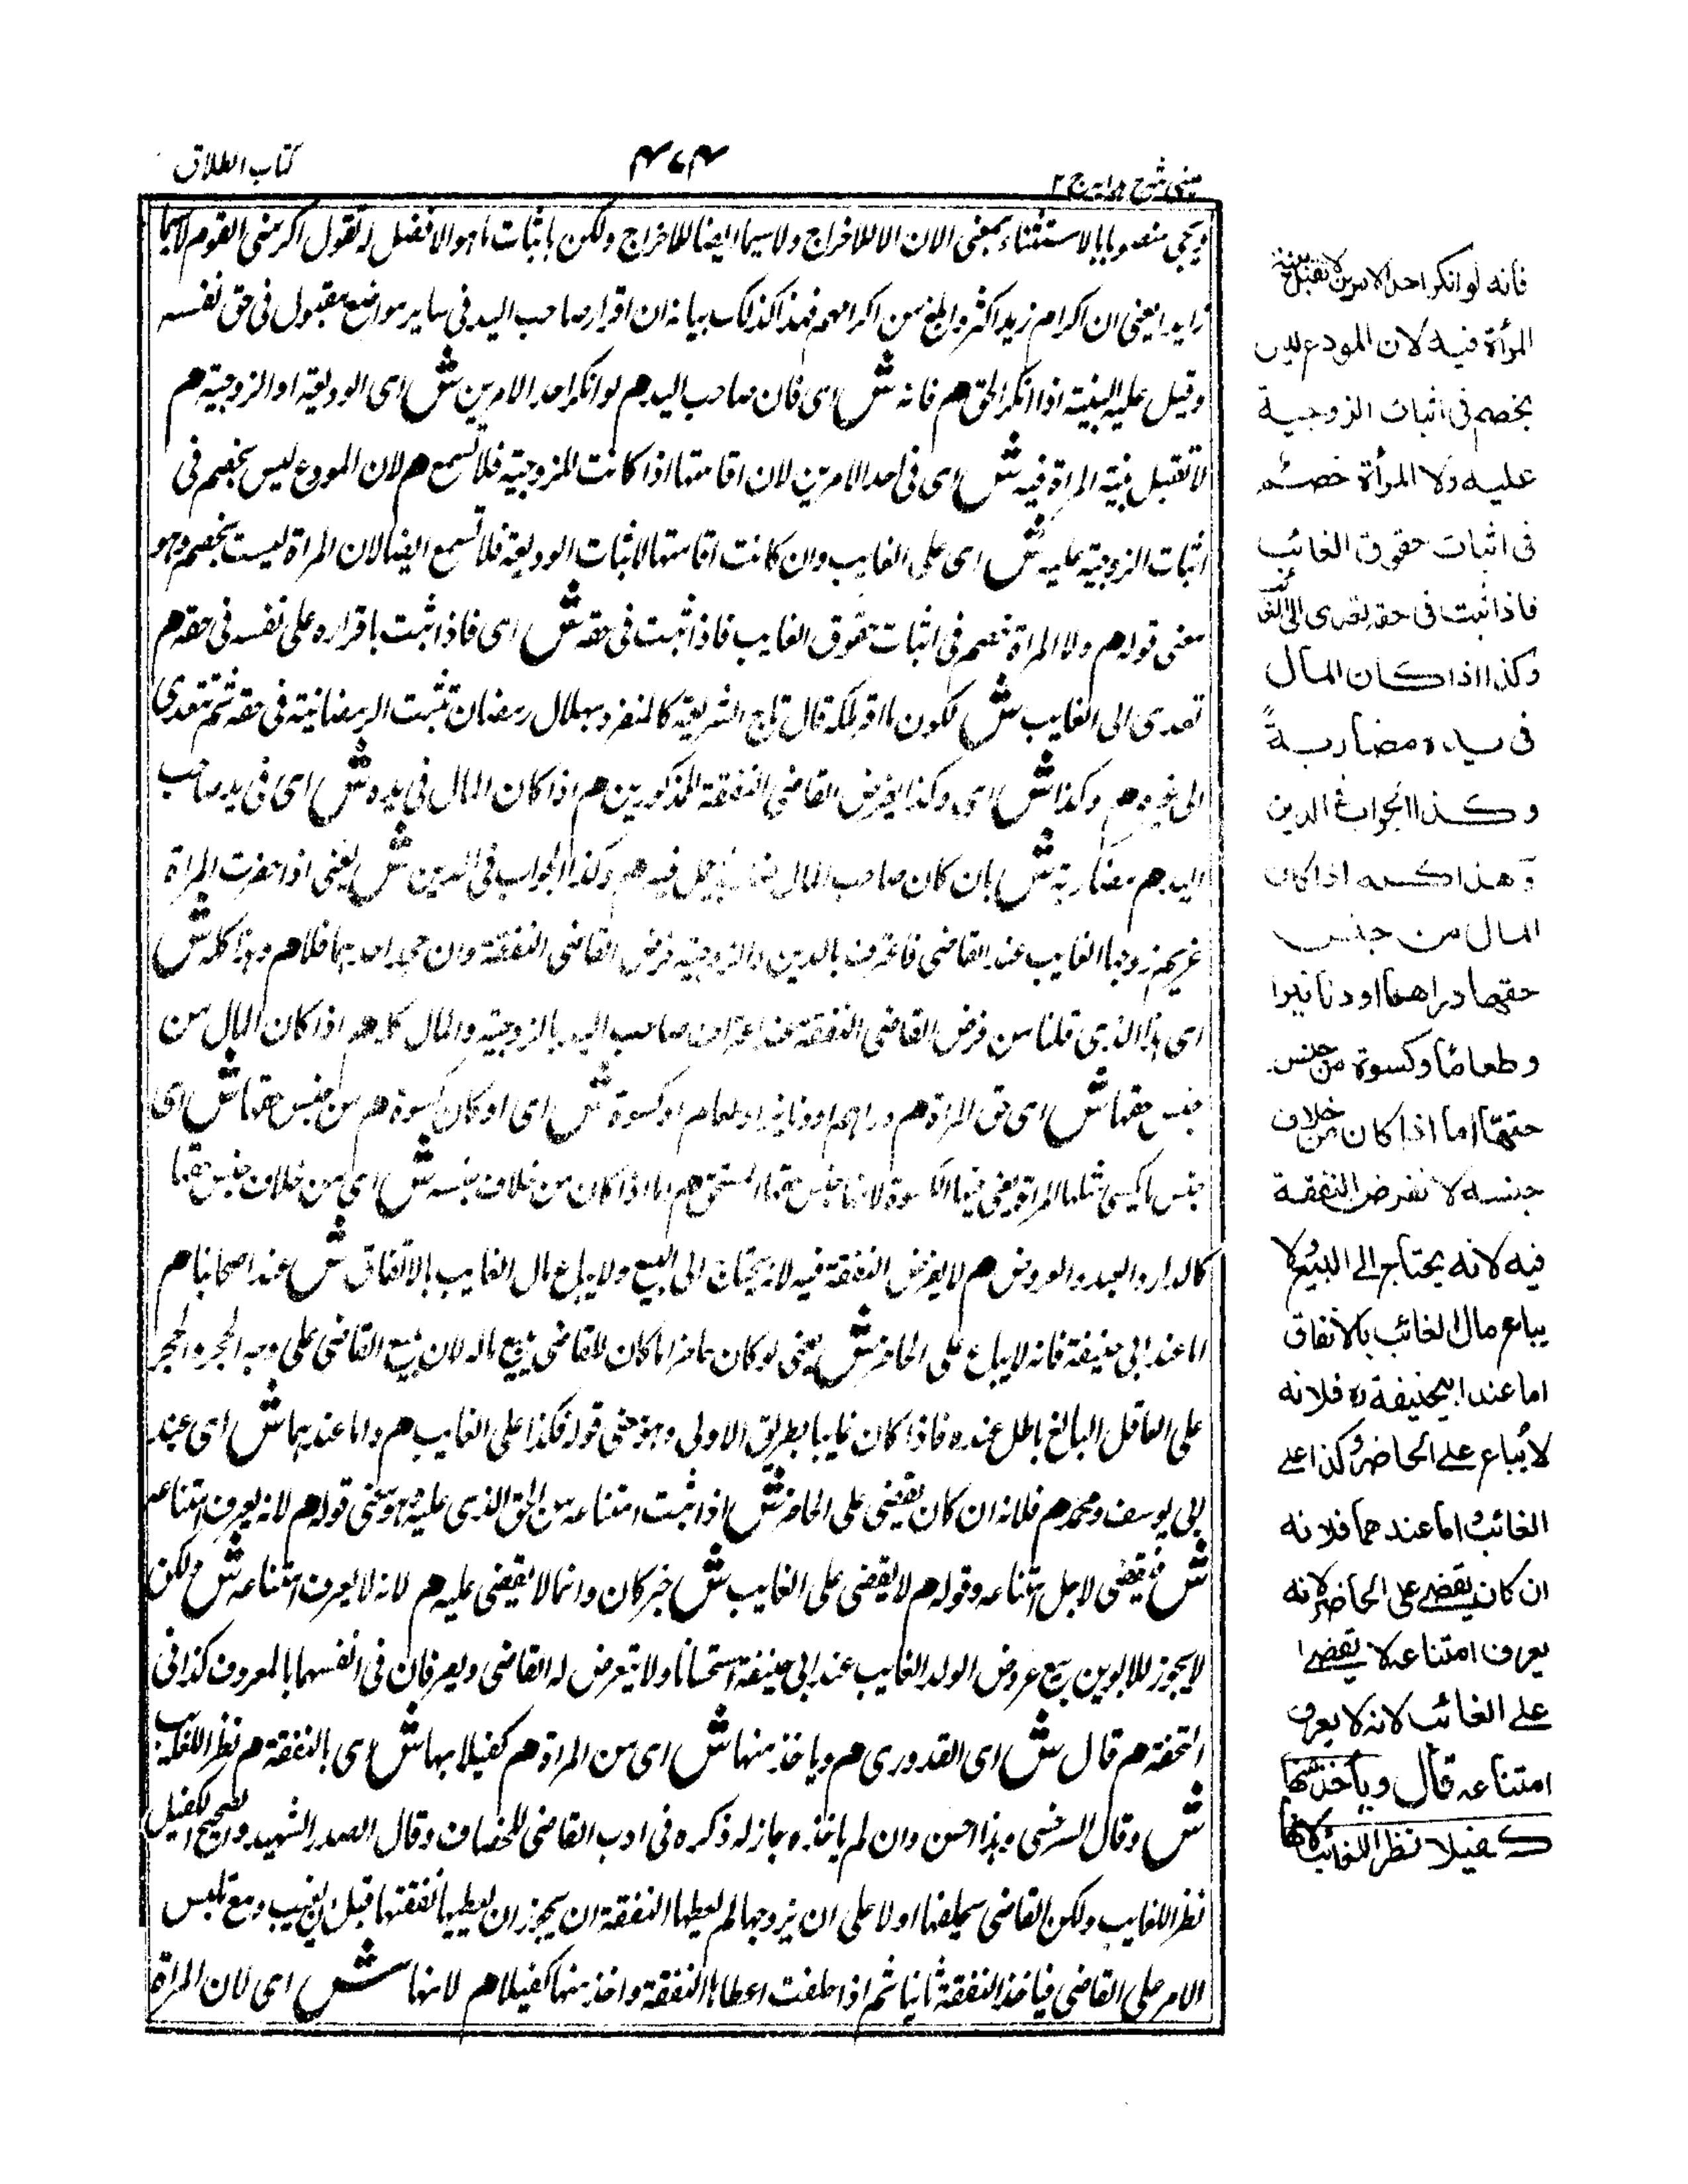 عینی شرح هدایه ج ٢
٤٧٤
كتاب الطلاق
ويجي منصوبا بالاستثناء بمعنى الا لان الا للاخراج ولاسيما ايضا للاخراج ولكن باثبات ما هو الافضل له تقول اكرمنى القوم لاسيما
زايد ا يعنى ان اكرام زيد اكثر وابلغ من اكرامهم فهذا كذلك بيانه ان اقرار صاحب اليد فى ساير مواضع مقبول فى حق نفسه
وقبل عليه البينة اذا انكر الحق هم فانه ش اى فان صاحب اليد هم لو انكر احد الامرين ش اى الوديعة او الزوجية هم
لا تقبل بينة المراة فيه ش اى فى احد الامرين لان اقامتها اذا كانت للزوجية فلا تسمع هم لان المودع ليس بخصم فى
اثبات الزوجية عليه ش اى على الغايب وان كانت اقامتها لاثبات الوديعة فلا تسمع ايضا لان المراة ليست بخصم وهو
معنى قوله هم ولا المراة خصم فى اثبات حقوق الغايب فاذا ثبت فى حقه ش اى فاذا ثبت باقراره على نفسه فى حقه هم
تعدى الى الغايب ش لكون ما اقر ملكه قال تاج الشريعة كالمنفرد بهلال رمضان تثبت الرمضانية فى حقه ثم تتعدى
الى غيره هم وكذا ش اى وكذا يفرض القاضى النفقة للمذكورين هم اذا كان المال فى يده ش اى فى يد صاحب
اليد هم مضاربة ش بان كان صاحب المال مضارب رجل فيه هم وكذا الجواب فى الدين ش يعنى اذا حضرت المراة
غريم زوجها الغايب عند القاضى فاعترف بالدين والزوجية فرض القاضى النفقة وان جحد احدهما فلا هم وهذا كله ش
اى هذا الذى قلنا من فرض القاضى النفقة عند اعتراف صاحب اليد بالزوجية والمال كله هم اذا كان المال من
جنس حقها ش اى حق المراة هم دراهم او دنانير او طعام او كسوة ش اى او كان كسوة هم من جنس حقها ش اى
جنس ما يكسى مثلها المراة يعنى فيها الكسوة لانها جنس حقها المستحق هم اما اذا كان من خلاف جنسه ش اى من خلاف جنس حقها
كالدار والعبد والعروض هم لا يفرض النفقة فيه لانه يحتاج الى البيع ولا يباع مال الغايب بالاتفاق ش عند اصحابنا هم
اما عند ابى حنيفة فانه لا يباع على الحاضر ش يعنى لو كان حاضرا ما كان للقاضى بيع ماله لان بيع القاضى على وجه الحجر والحجر
على العاقل البالغ باطل عنده فاذا كان غايبا بطريق الاولى وهو معنى قوله فكذا على الغايب هم واما عندهما ش اى عند
ابى يوسف ومحمد هم فلانه ان كان يقضى على الحاضر ش اذا ثبت امتناعه من الحق الذى عليه وهو معنى قوله هم لانه يعرف امتناعه
ش فيقضى لاجل امتناعه وقوله هم لا يقضى على الغايب ش خبر كان وانما لا يقضى عليه هم لانه لا يعرف امتناعه ش ح لكن
لا يجوز للابوين بيع عروض الولد الغايب عند ابى حنيفة استحسانا ولا يتعرض له القاضى ويصرفان فى انفسهما بالمعروف كذا فى
التحفة هم قال ش اى القدورى هم وياخذ منها ش اى من المراة هم كفيلا بها ش اى بالنفقة هم نظرا للغايب
ش وقال السرخسى وهذا احسن وان لم ياخذه جاز له ذكره فى ادب القاضى للخصاف وقال الصدر الشهيد والصحيح التكفيل
نظرا للغايب ولكن القاضى يحلفها اولا على ان زوجها لم يعطها النفقة ان يجوز ان يعطيها نفقتها قبل ان يغيب ومع تلبس
الامر على القاضى فياخذ النفقة ثانيا ثم اذا حلفت اعطاها النفقة واخذ منها كفيلا هم لانها ش اى لان المراة
فانه لو انكر احد الامرين لا تقبل بينة
المرأة فيه لان المودع ليس
بخصم فى اثبات الزوجية
عليه ولا المرأة خصم
فى اثبات حقوق الغائب
فاذا ثبت فى حقه تعدى الى الغائب
وكذا اذا كان المال
فى يده مضاربةً
وكذا الجواب فى الدين
وهذا كله اذا كان
المال من جنس
حقها دراهما او دنانيرا
وطعاما وكسوة من جنس
حقها اما اذا كان من خلاف
جنسه لا نفرض النفقة
فيه لانه يحتاج الى البيع ولا
يباع مال الغائب بالاتفاق
اما عند ابيحنيفة ره فلانه
لا يباع على الحاضر وكذا على
الغائب واما عندهما فلانه
ان كان يقضى على الحاضر لانه
يعرف امتناعه لا يقضى
على الغائب لانه لا يعرف
امتناعه قال ويأخذ منها
كفيلا نظرا للغائب لانها